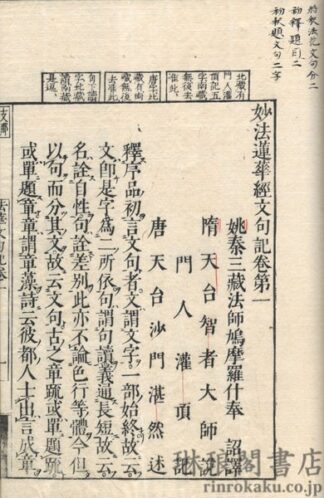 将釈法花文句分二
初釋題目二
初釈題文句二字
妙法蓮華經文句記卷第一
姚秦三藏法師鳩摩羅什奉 詔譯
隋天台智者大師說
門人灌頂記
唐天台沙門湛然述
釋序品初言文句者文謂文字一部始終故云
文即是字爲二所依句謂句讀義通長短故云
名詮自性句詮差別此亦不論色行等體今但
以句而分其文故云文句古之章疏或單題疏
或單題章章謂章藻詩云彼都人士出言成章
琳琅閣書店
rinrokaku.co.jp